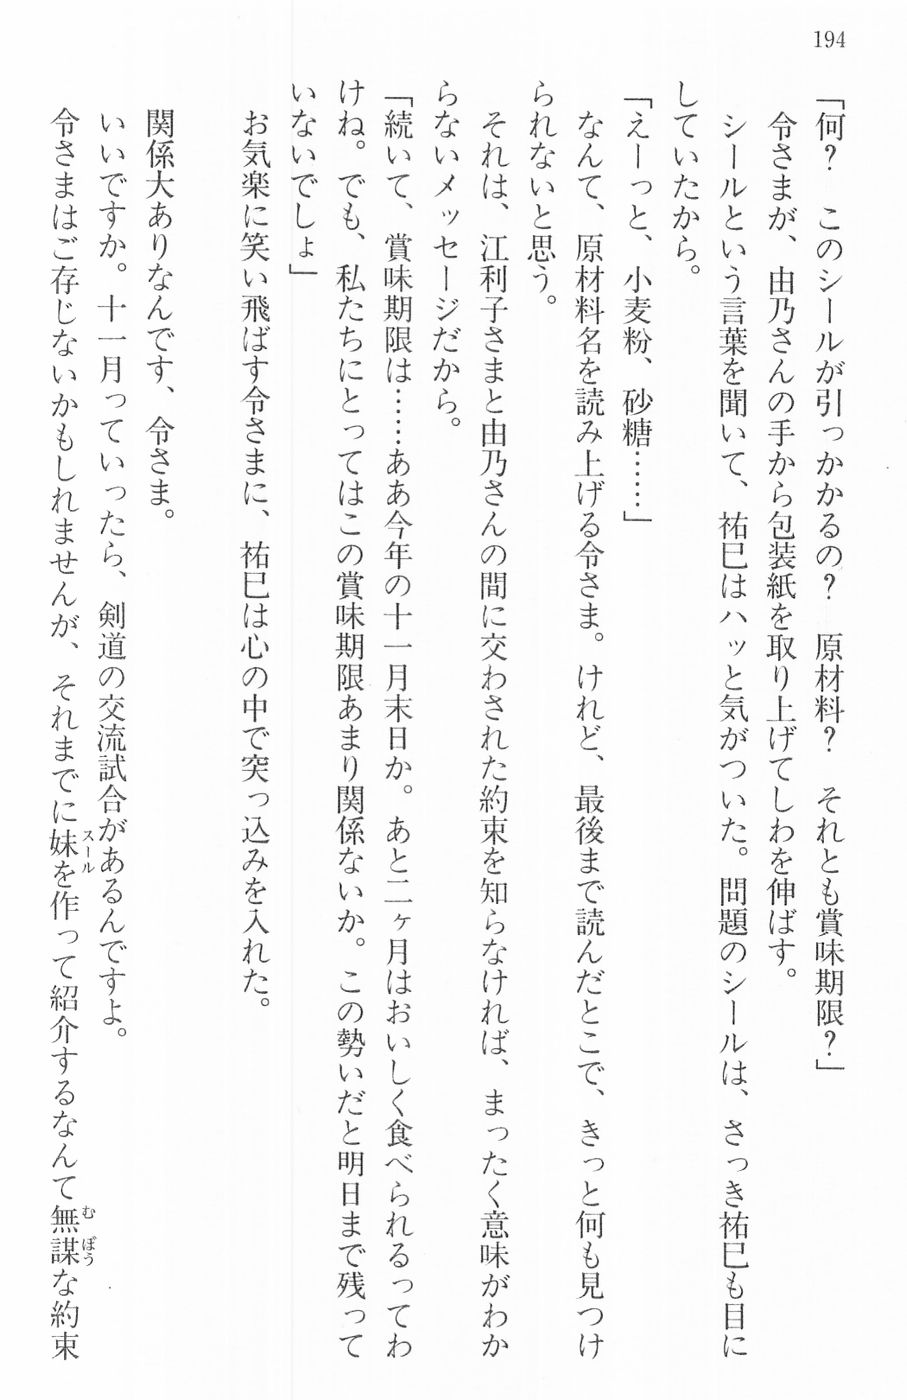 194
「何？　このシールが引っかかるの？　原材料？　それとも賞味期限？」
令さまが、由乃さんの手から包装紙を取り上げてしわを伸ばす。
シールという言葉を聞いて、祐巳はハッと気がついた。問題のシールは、さっき祐巳も目に
していたから。
「えーっと、小麦粉、砂糖……」
なんて、原材料名を読み上げる令さま。けれど、最後まで読んだとこで、きっと何も見つけ
られないと思う。
それは、江利子さまと由乃さんの間に交わされた約束を知らなければ、まったく意味がわか
らないメッセージだから。
「続いて、賞味期限は……ああ今年の十一月末日か。あと二ヶ月はおいしく食べられるってわ
けね。でも、私たちにとってはこの賞味期限あまり関係ないか。この勢いだと明日まで残って
いないでしょ」
お気楽に笑い飛ばす令さまに、祐巳は心の中で突っ込みを入れた。
関係大ありなんです、令さま。
いいですか。十一月っていったら、剣道の交流試合があるんですよ。
令さまはご存じないかもしれませんが、それまでに妹スールを作って紹介するなんて無謀むぼうな約束